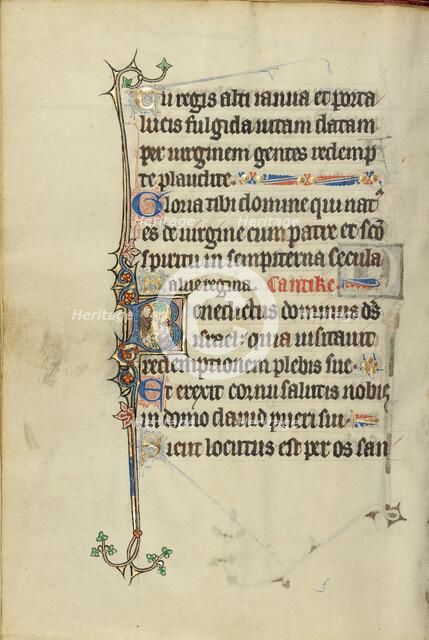 Tu regis alti ianua et porta
lucis fulgida uitam datam
per uirginem gentes redemp
te plaudite.
Gloria tibi domine qui nat'
es de uirgine cum patre et sc̄o
spiritu in sempiterna secula
Salue regina. Cantike.
Benedictus dominus d̄s
israel: quia uisitauit
redemptionem plebis sue.
Et erexit cornu salutis nobis
in domo dauid pueri sui.
Sicut locutus est per os san
Heritage